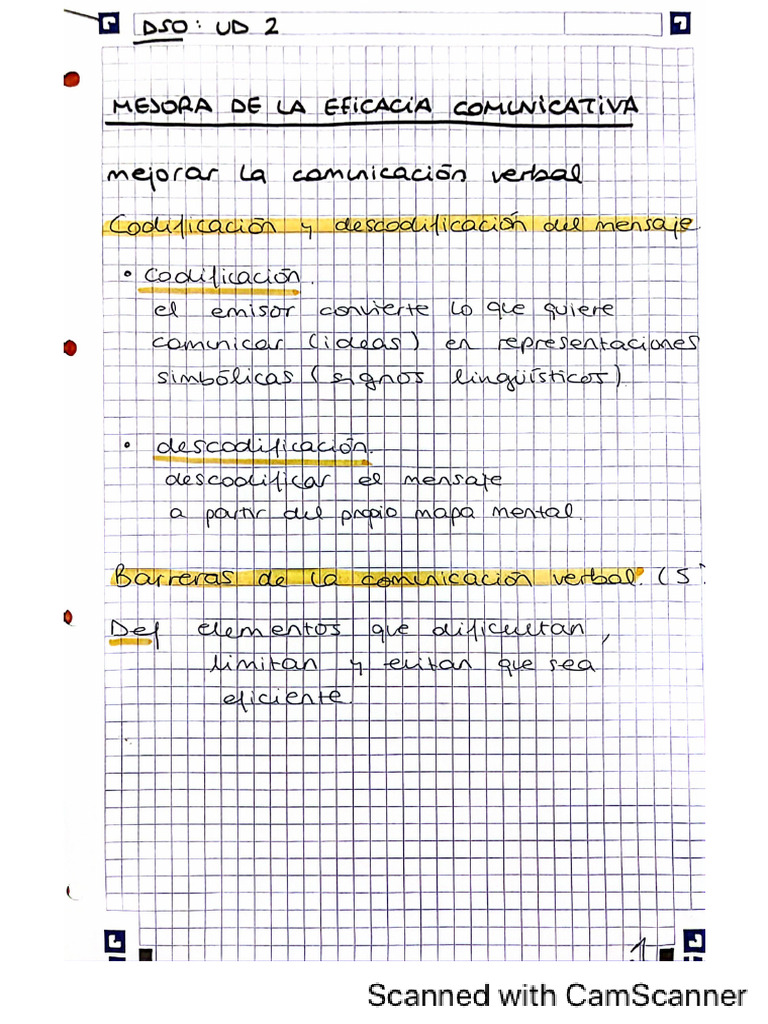 DSO: UD 2
MEJORA DE LA EFICACIA COMUNICATIVA
mejorar la comunicación verbal
Codificación y descodificación del mensaje.
• codificación.
el emisor convierte lo que quiere
comunicar (ideas) en representaciones
simbólicas (signos lingüísticos).
• descodificación.
descodificar el mensaje
a partir del propio mapa mental.
Barreras de la comunicación verbal. (5
Def elementos que dificultan,
limitan y evitan que sea
eficiente.
1
Scanned with CamScanner